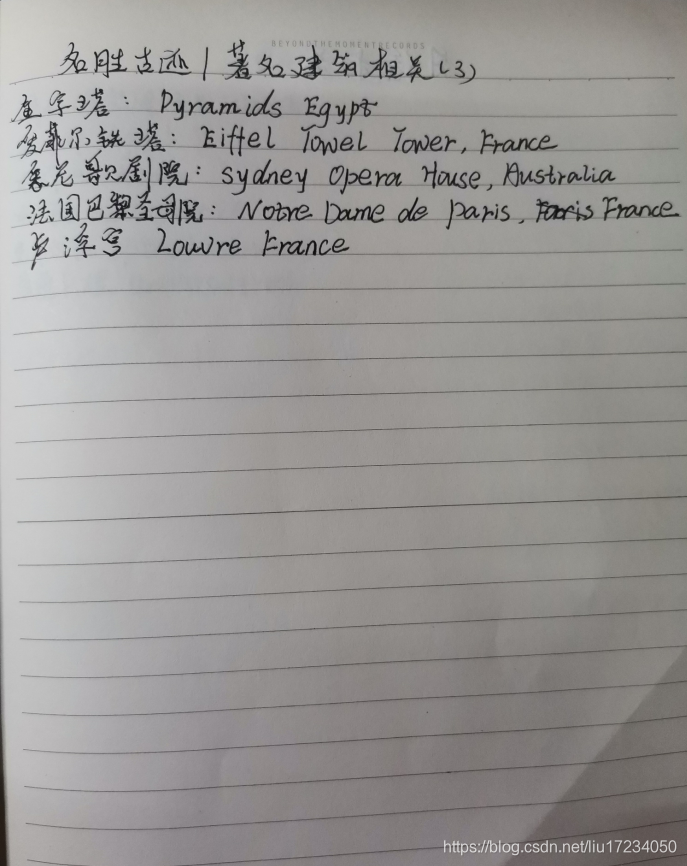 BEYONDTHEMOMENTRECORDS
名胜古迹/著名建筑相关(3)
金字塔: Pyramids Egypt
埃菲尔铁塔: Eiffel Towel Tower, France
悉尼歌剧院: Sydney Opera House, Australia
法国巴黎圣母院: Notre Dame de Paris, Paris France
卢浮宫 Louvre France
https://blog.csdn.net/liu17234050